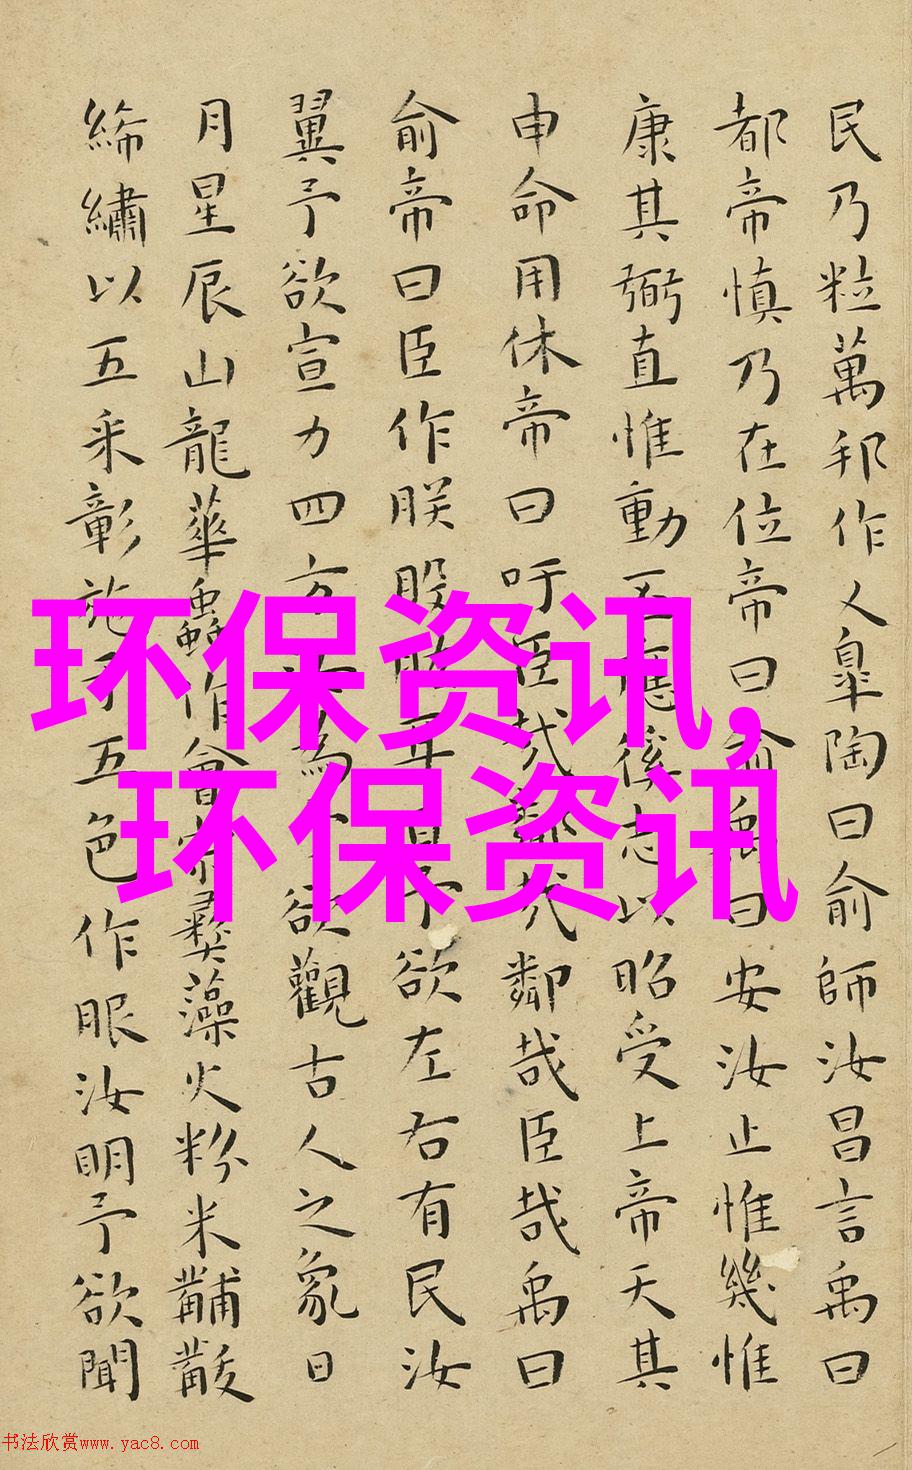 民乃粒萬邦作乂皐陶曰俞師汝昌言禹曰
都帝慎乃在位帝曰俞禹曰安汝止惟幾惟
康其弼直惟動丕應徯志以昭受上帝天其
申命用休帝曰吁臣哉鄰哉鄰哉臣哉禹曰
俞帝曰臣作朕股肱耳目予欲左右有民汝
翼予欲宣力四方汝為欲觀古人之象日
月星辰山龍華蟲作會宗彝藻火粉米黼黻
絺繡以五采彰施于五色作服汝明予欲聞
环保资讯,
环保资讯
书法欣赏www.yac8.com